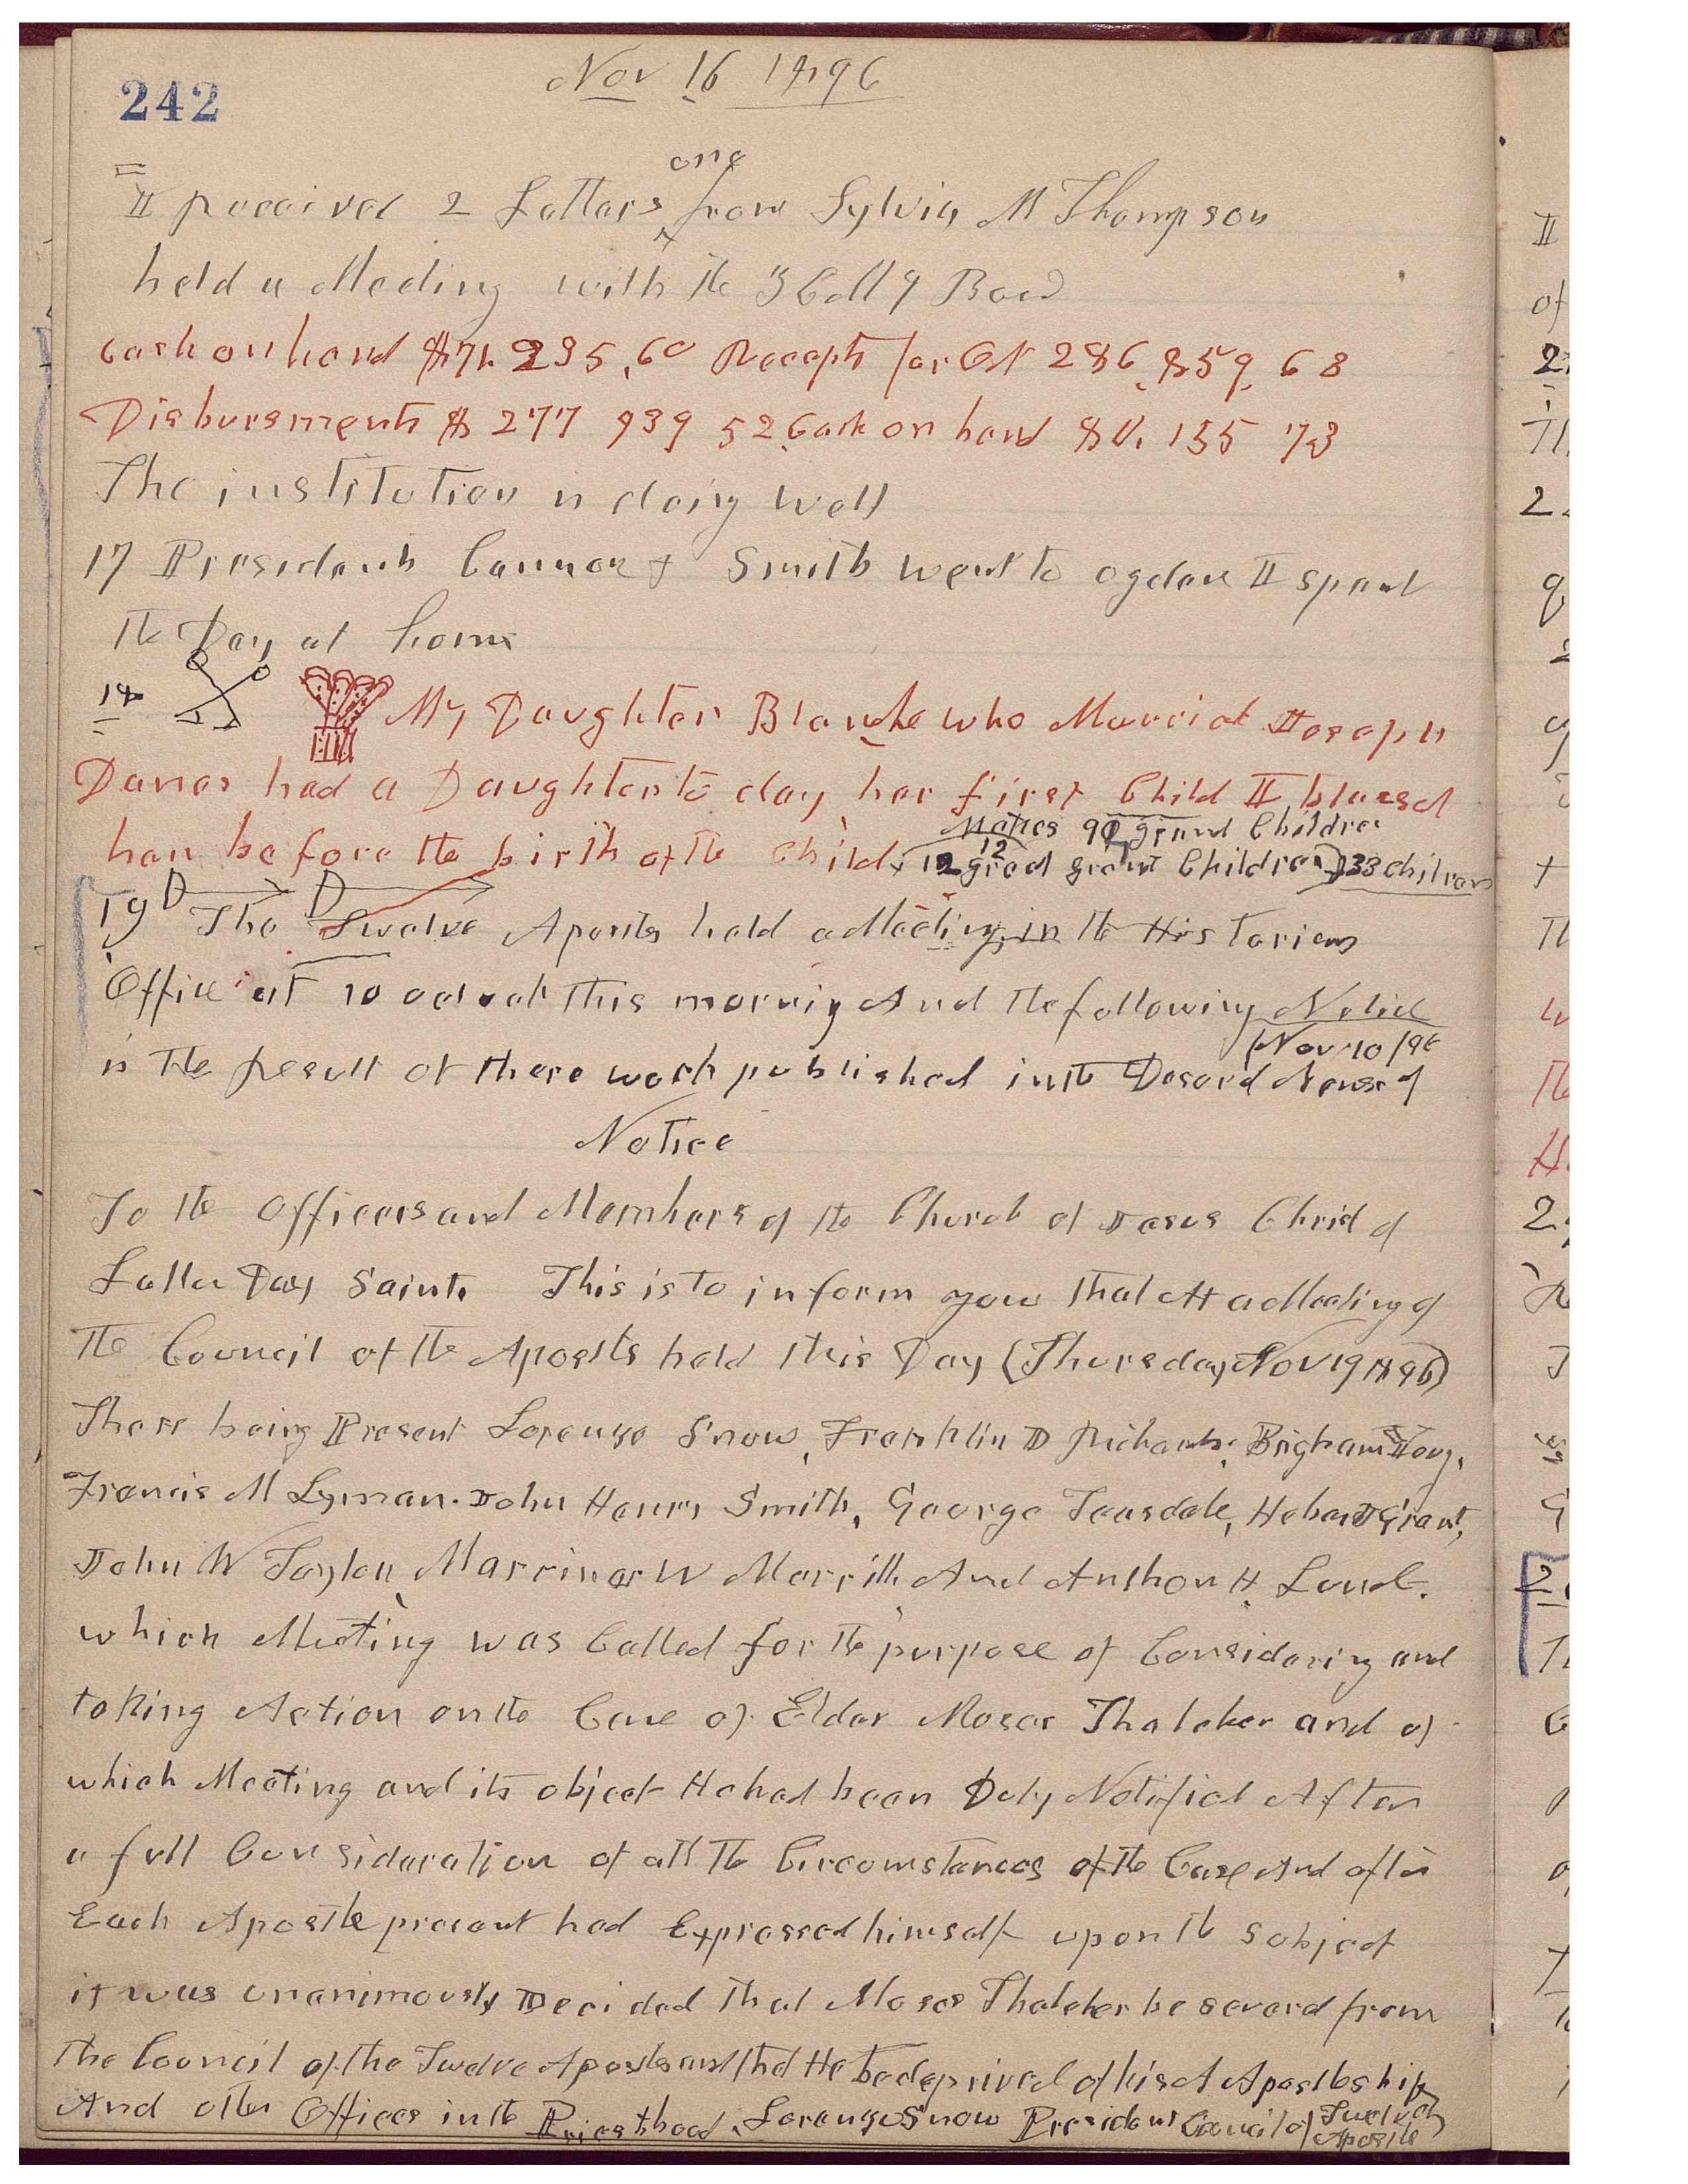 242
Nov 16 1896
I received 2 Letters one from Sylvia M Thompson
held a Meeting with the ZCMI Board
Cash on hand $71.235,60 Recepts for Oct 286,859,68
Disbursments $277 939 52 Cash on hand 80,155 73
The institution is doing well
17 Presidents Cannon & Smith went to ogden I spent
the Day at home
18 My Daughter Blanche who Married Joseph
Danes had a Daughter to day her first Child I blessed
her before the birth of the Child, Makes grand Children
12 great grand Children 33 Children
19 The Twelve Apostles held a Meeting in the Historians
Office at 10 oclock this morning And the following Notice
is the result of there work published in the Deserett News of (Nov 10/96
Notice
To the Officers and Members of the Church of Jesus Christ of
Latter Day Saints This is to inform you that At a Meeting of
the Council of the Apostles held this Day (Thursday Nov 19 1896)
There being Present Lorenzo Snow, Franklin D Richards, Brigham Young,
Francis M Lyman. John Henry Smith, George Teasdale, Heber J Grant,
John W Taylor, Marriner W Merrill And Anthon H. Lund.
which Meeting was Called for the purpose of Considering and
taking Action on the Case of Elder Moses Thatcher and of
which Meeting and its object He had been Duly Notified After
a full Consideration of all the Circumstances of the Case And after
Each Apostle present had Expressed himself upon the Subject
it was unanimously Decided that Moses Thatcher be severed from
the Council of the Twelve Apostles and that He be deprived of his Apostleship
And other Offices in the Priesthood. Lorenzo Snow President Council of Twelve Apostle